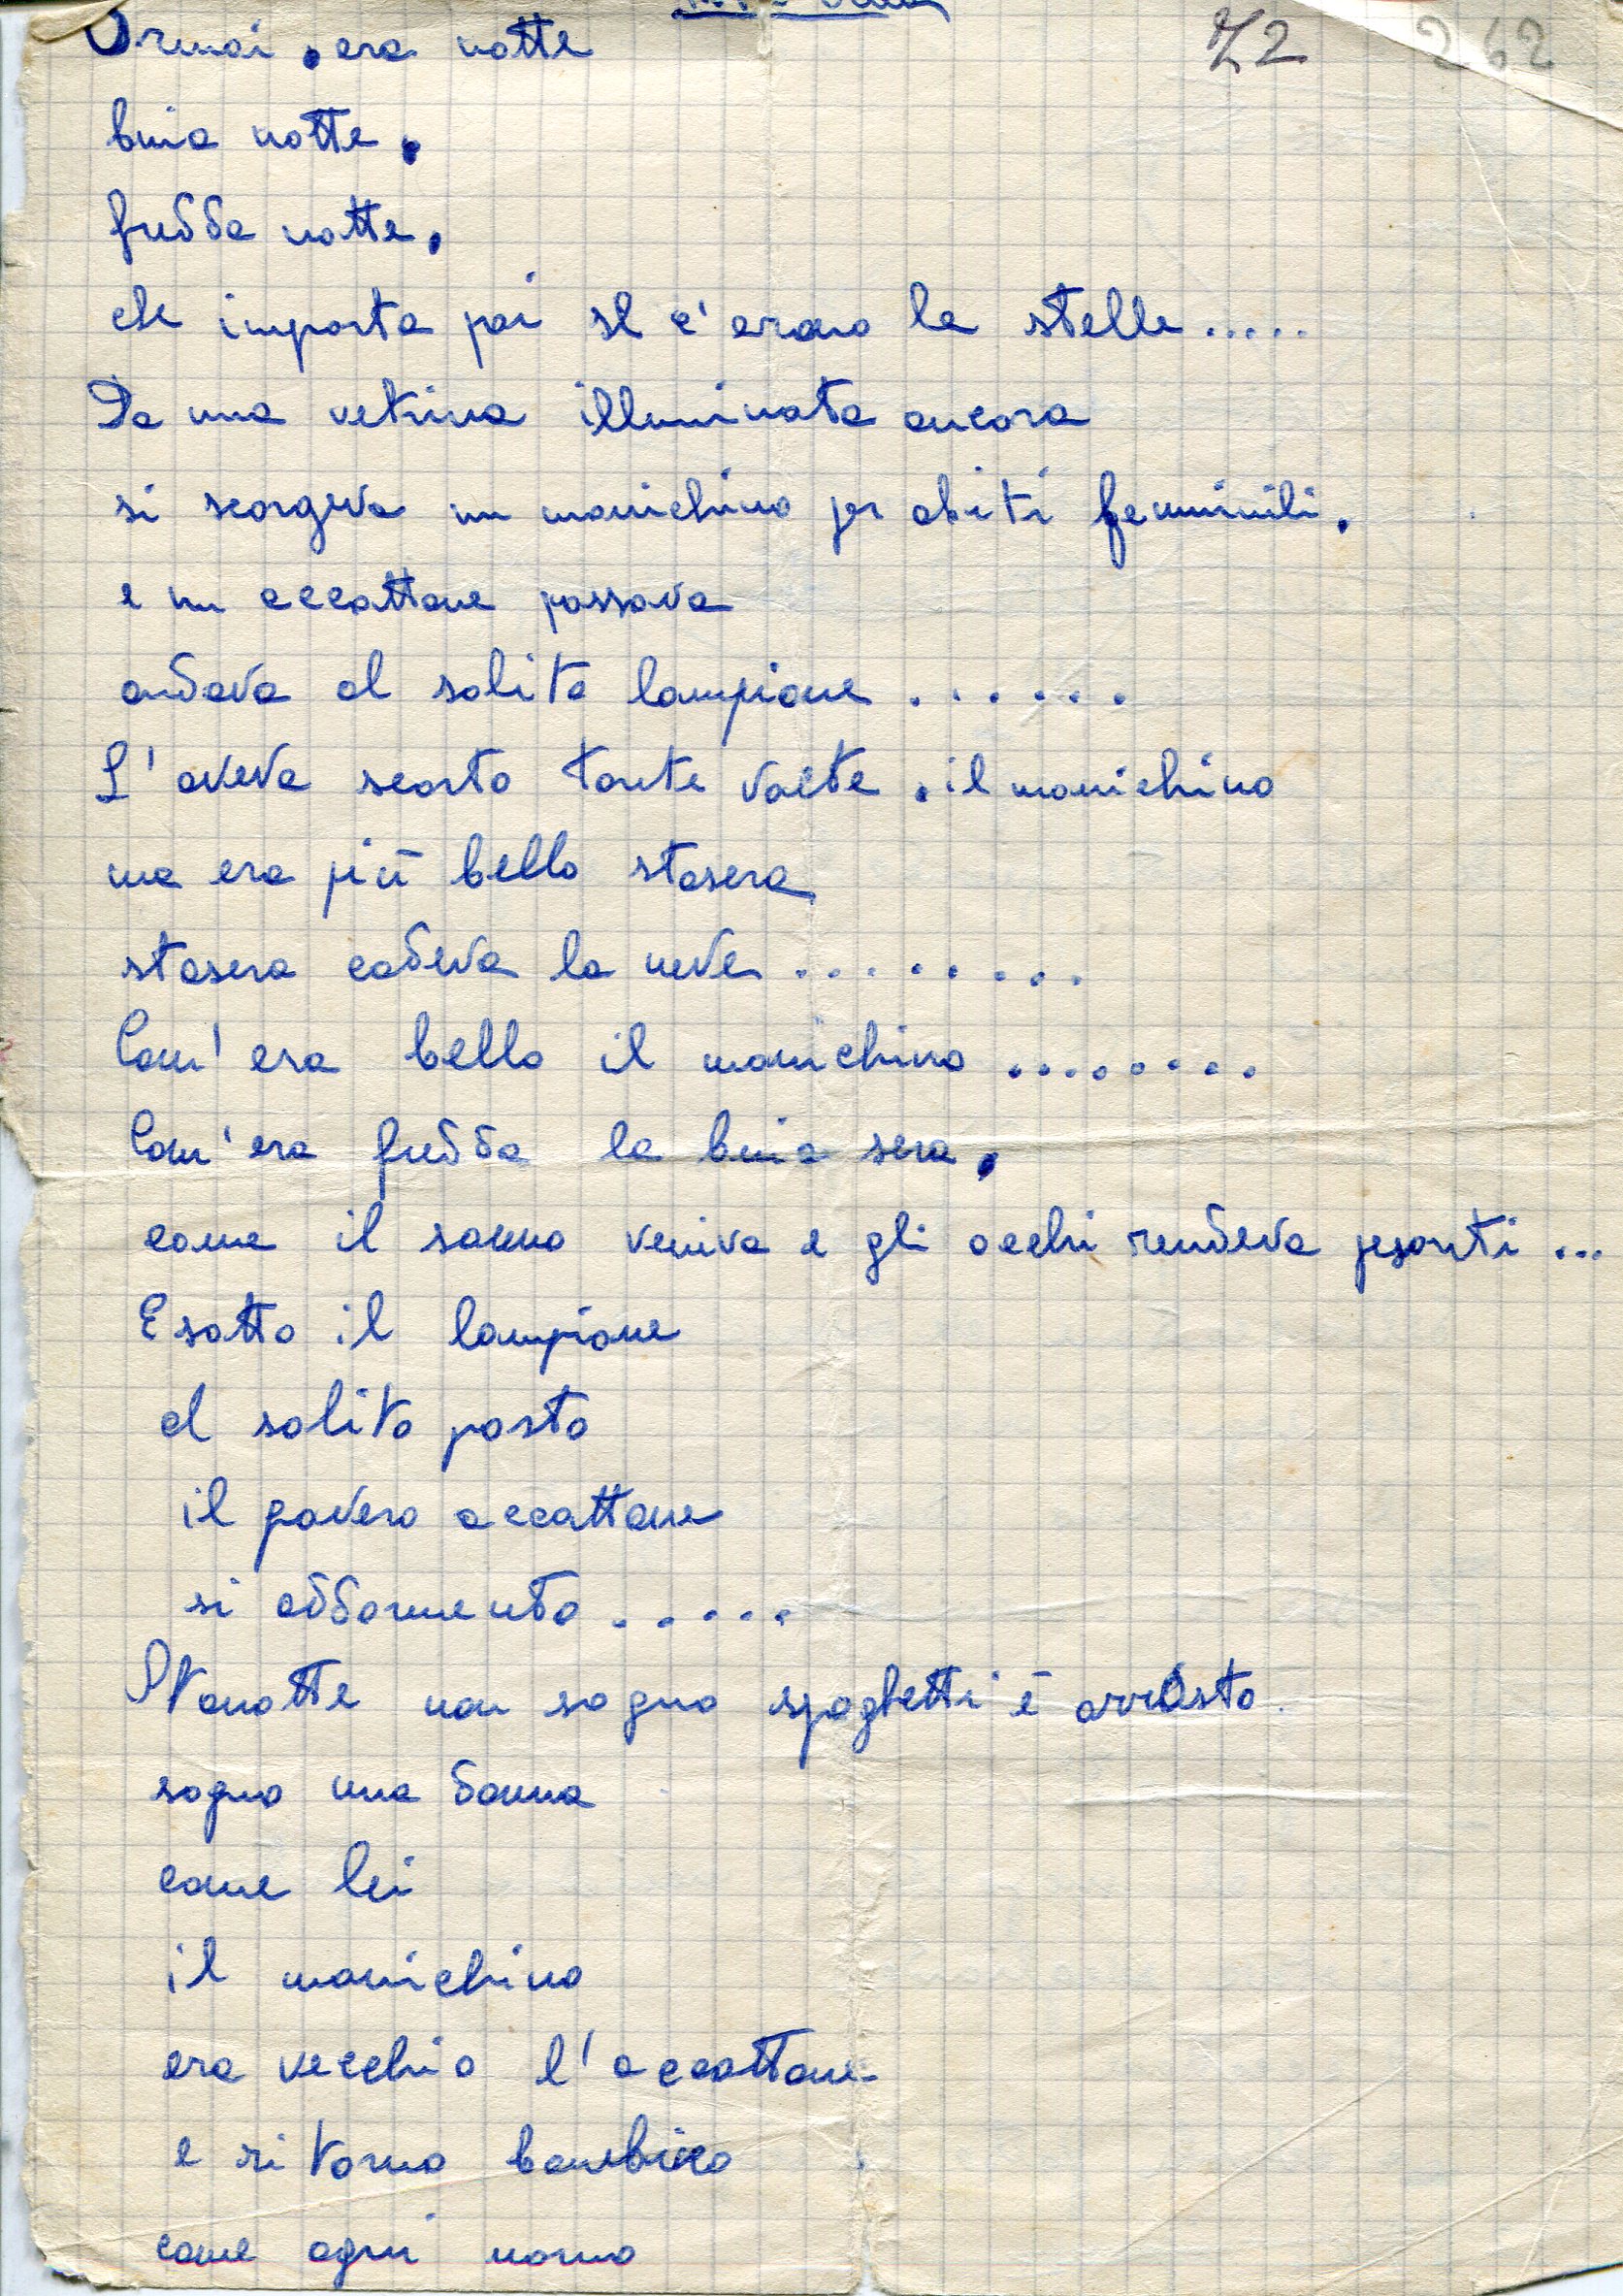 72 262
Ormai, era notte
buia notte,
fredda notte,
che importa poi se c'erano le stelle.....
Da una vetrina illuminata ancora
si scorgeva un manichino per abiti femminili,
e un accattone passava
andava al solito lampione ......
L'aveva scorto tante volte, il manichino
ma era più bello stasera
stasera cadeva la neve ........
Com'era bello il manichino ........
Com'era fredda la buia sera,
come il sonno veniva e gli occhi rendeva pesanti ...
E sotto il lampione
al solito posto
il povero accattone
si addormentò .....
Stanotte non sogno spaghetti e arrosto.
sogno una donna
come lei
il manichino
era vecchio l'accattone
e ritornò bambino
come ogni uomo